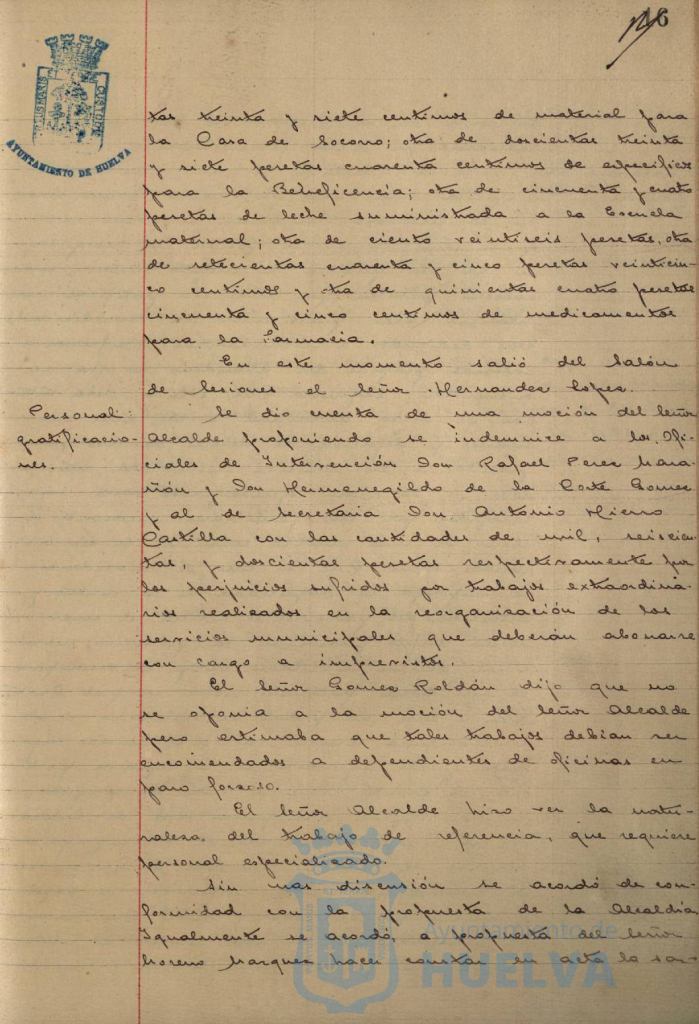 146
AYUNTAMIENTO DE HUELVA
tas treinta y siete centimos de material para
la Casa de Socorro; otra de doscientas treinta
y siete pesetas cuarenta centimos de especificos
para la Beneficencia; otra de cincuenta y cuatro
pesetas de leche suministrada a la Escuela
maternal; otra de ciento veintiseis pesetas, otra
de setecientas cuarenta y cinco pesetas veinticin-
co centimos y otra de quinientas cuatro pesetas
cincuenta y cinco centimos de medicamentos
para la Farmacia.
En este momento salió del Salón
de Sesiones el Señor Hernandez Lopez.
Personal:
gratificacio-
nes.
Se dio cuenta de una moción del Señor
Alcalde proponiendo se indemnice a los Ofi-
ciales de Intervención Don Rafael Perez Mara-
ñón y Don Hermenegildo de la Corte Gomez
y al de Secretaria Don Antonio Hierro
Castilla con las cantidades de mil, seiscien-
tas, y doscientas pesetas respectivamente por
los perjuicios sufridos por trabajos extraordina-
rios realizados en la reorganización de los
servicios municipales que deberán abonarse
con cargo a imprevistos.
El Señor Gomez Roldán dijo que no
se oponia a la moción del Señor Alcalde
pero estimaba que tales trabajos debian ser
encomendados a dependientes de oficinas en
paro forzoso.
El Señor Alcalde hizo ver la natu-
raleza del trabajo de referencia, que requiere
personal especializado.
Sin mas discusión se acordó de con-
formidad con la propuesta de la Alcaldía
Igualmente se acordó, a propuesta del Señor
Moreno Marquez hacer constar en acta la sa-
Ayuntamiento de
HUELVA